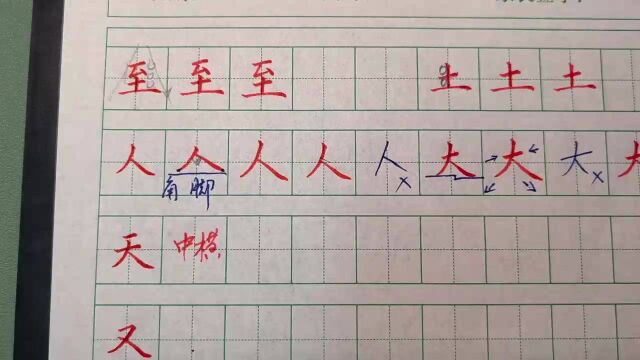 至 至 至 土 土 土
人 人 人 人 人 × 大 大 大 ×
角 脚
天 中横
又